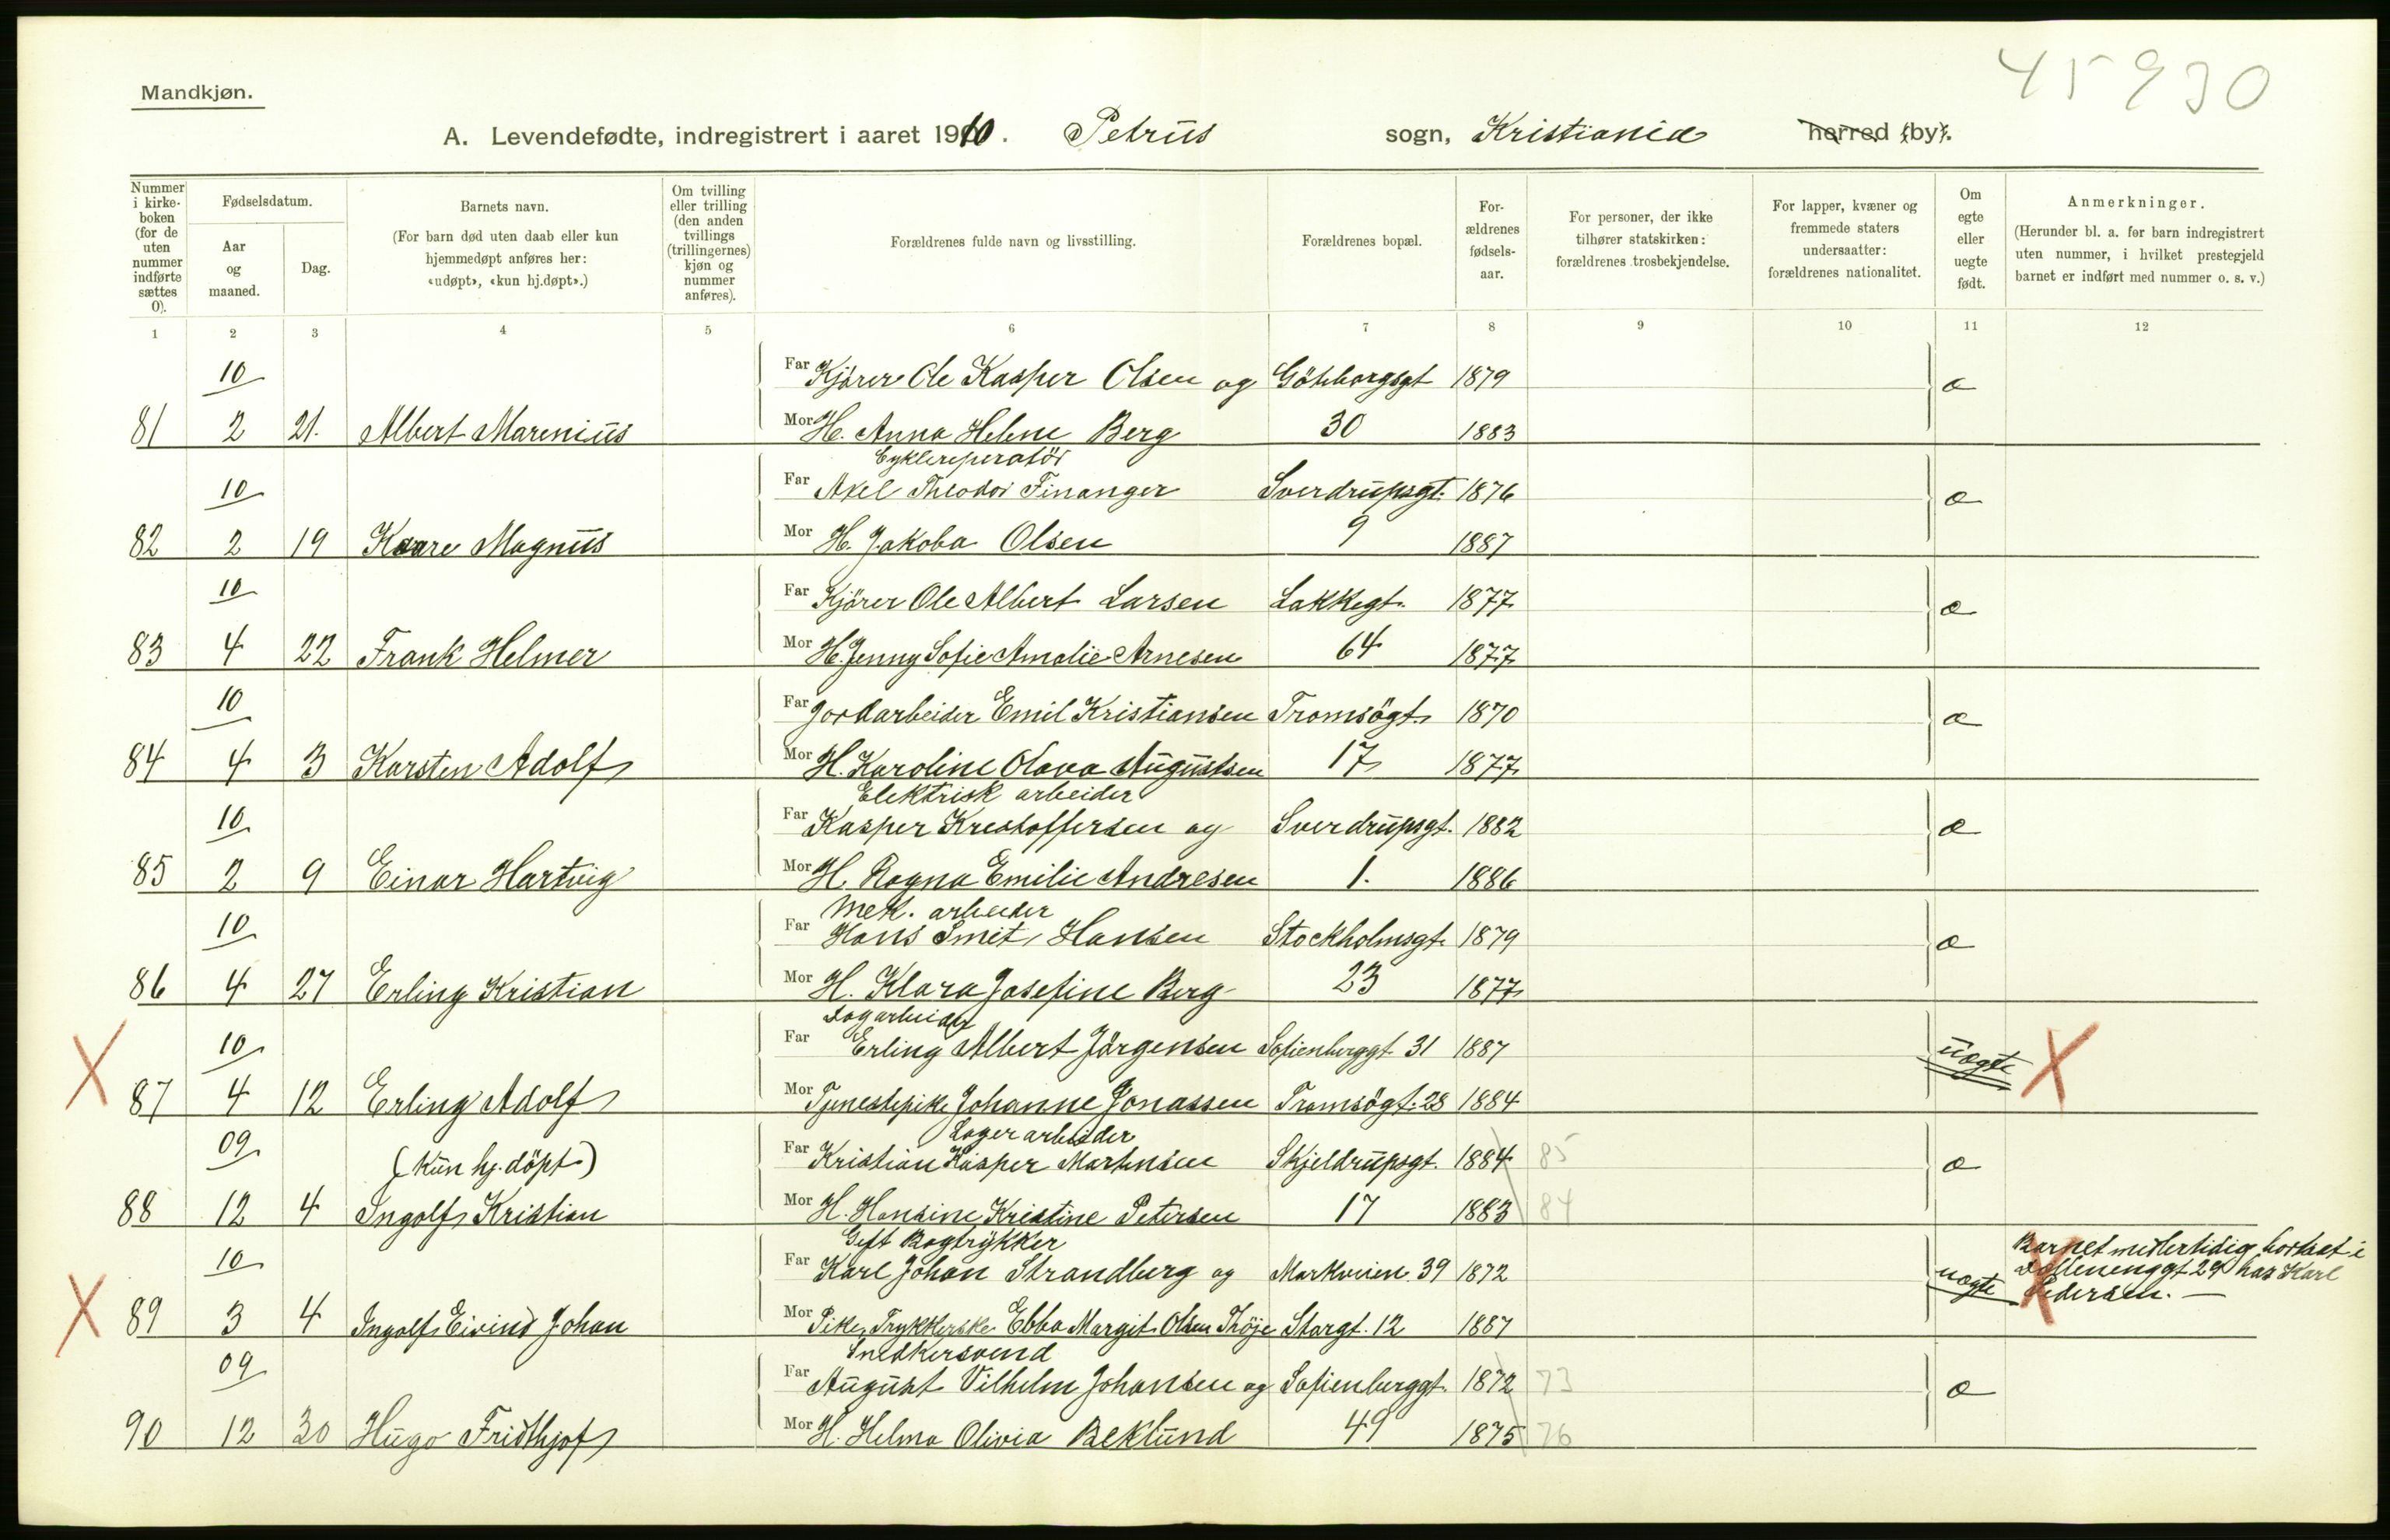 45930
Mandkjøn.
A. Levendefødte, indregistrert i aaret 1910. Petrus sogn, Kristiania herred (by).
Nummer i kirke-boken (for de uten nummer indførte sættes 0).
Fødselsdatum.
Aar og maaned.
Dag.
Barnets navn.
(For barn død uten daab eller kun hjemmedøpt anføres her: «udøpt», «kun hj.døpt».)
Om tvilling eller trilling (den anden tvillings (trillingernes) kjøn og nummer anføres).
Forældrenes fulde navn og livsstilling.
Forældrenes bopæl.
For-ældrenes fødsels-aar.
For personer, der ikke tilhører statskirken: forældrenes trosbekjendelse.
For lapper, kvæner og fremmede staters undersaatter: forældrenes nationalitet.
Om egte eller uegte født.
Anmerkninger.
(Herunder bl. a. for barn indregistrert uten nummer, i hvilket prestegjeld barnet er indført med nummer o. s. v.)
1 2 3 4 5 6 7 8 9 10 11 12
10 Far Kjörer Ole Kasper Olsen og Göteborgsgt 1879 æ
81 2 21. Albert Marenius Mor H. Anna Helene Berg 30 1883
Cyklereperatör
10 Far Axel Theodor Finanger Sverdrupsgt. 1876 æ
82 2 19 Kaare Magnus Mor H. Jakoba Olsen 9 1887
10 Far Kjörer Ole Albert Larsen Lakkegt. 1877 æ
83 4 22 Frank Helmer Mor H. Jenny Sofie Amalie Arnesen 64 1877
10 Far Jordarbeider Emil Kristiansen Tromsögt. 1870 æ
84 4 3 Karsten Adolf Mor H. Karoline Olava Augustsen 17 1877
Elektrisk arbeider
10 Far Kasper Kristoffersen og Sverdrupsgt. 1882 æ
85 2 9 Einar Hartvig Mor H. Ragna Emilie Andresen 1. 1886
Mek. arbeider
10 Far Hans Smit Hansen Stockholmsgt. 1879 æ
86 4 27 Erling Kristian Mor H. Klara Josefine Berg 23 1877
Lagarbeider
10 Far Erling Albert Jörgensen Sofienberggt 31 1887 uægte
87 4 12 Erling Adolf Mor Tjenestepike Johanne Jonassen Tromsögt. 28 1884
Lagerarbeider
09 (kun hj. döpt) Far Kristian Kasper Martinsen Skjeldrupsgt. 1884 85 æ
88 12 4 Ingolf Kristian Mor H. Hansine Kristine Petersen 17 1883 84
Gift Bogtrykker
10 Far Karl Johan Strandberg og Markveien 39 1872 uægte Barnet midlertidig bortsat i
Dælenenggt 29 hos Karl
Pedersen.
89 3 4 Ingolf Eivind Johan Mor Pike, Trykkerske Ebba Margit Olsen Thöje Storgt. 12 1887
Snedkersvend
09 Far August Vilhelm Johansen og Sofienberggt. 1872 73 æ
90 12 30 Hugo Fridthjof Mor H. Helma Olivia Beklund 49 1875 76